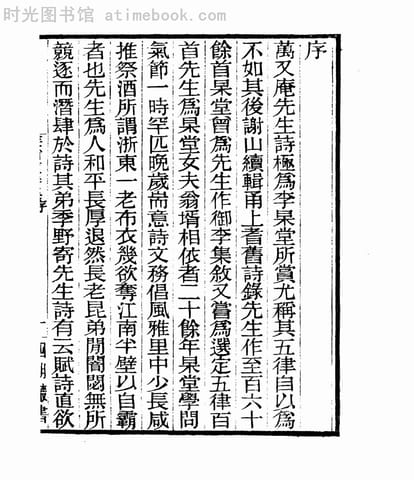 时光图书馆 - atimebook.com
序
萬又庵先生詩極爲李杲堂所賞尤稱其五律自以爲
不如其後謝山續輯甬上耆舊詩錄先生作至百六十
餘首杲堂曾爲先生作御李集敘又嘗爲選定五律百
首先生爲杲堂女夫翁壻相依者二十餘年杲堂學問
氣節一時罕匹晚歲耑意詩文務倡風雅里中少長咸
推祭酒所謂浙東一老布衣幾欲奪江南半壁以自霸
者也先生爲人和平長厚退然長老昆弟閒闇悶無所
競逐而潛肆於詩其弟季野寄先生詩有云賦詩直欲